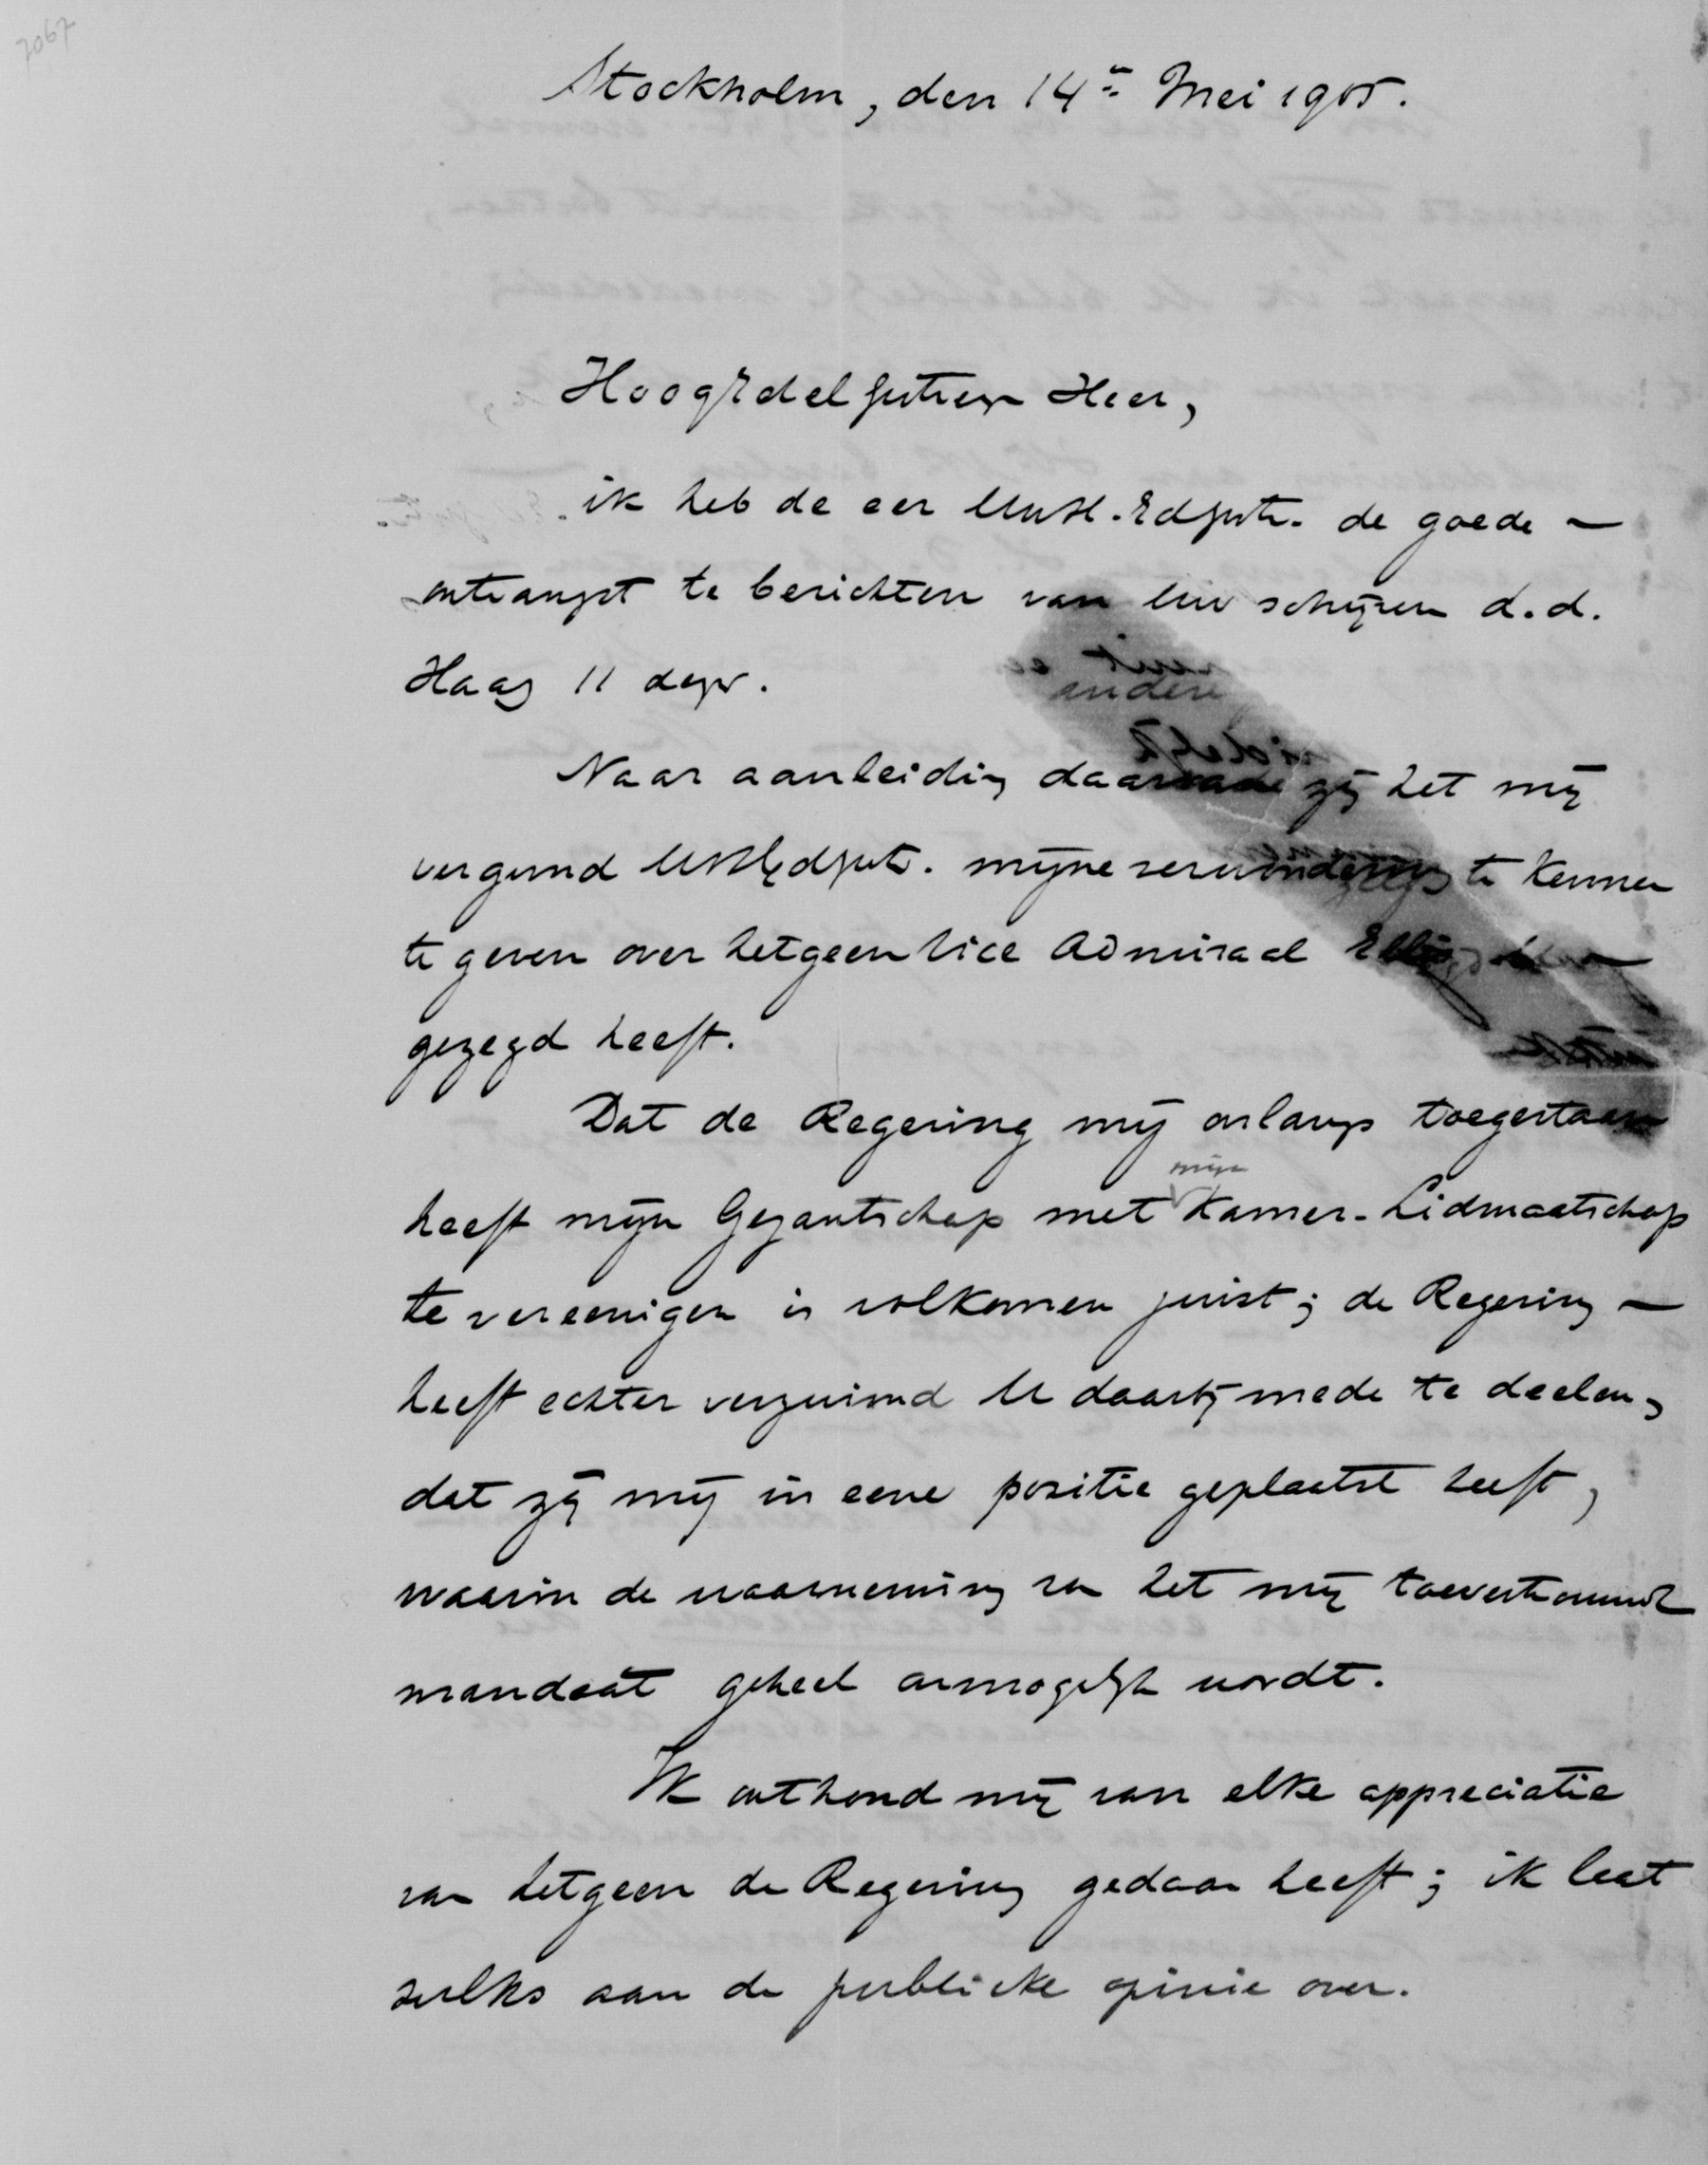 7067
Stockholm, den 14en Mei 1905.
HoogEdelGestrenge Heer,
ik heb de eer UwH.Edgestr. de goede —
ontvangst te berichten van Uw schrijven d.d.
Haag 11 dezer.
Naar aanleiding daarvan zij het mij
vergund UwHEdgestr. mijne verwondering te kennen
te geven over hetgeen Vice Admiraal
gezegd heeft.
Dat de Regering mij onlangs toegestaan
heeft mijn Gezantschap met mijn Kamer-Lidmaatschap
te vereenigen is volkomen juist; de Regering —
heeft echter verzuimd U daarbij mede te deelen,
dat zij mij in eene positie geplaatst heeft,
waarin de waarneming van het mij toevertrouwd
mandaat geheel onmogelijk wordt.
Ik onthoud mij van elke appreciatie
van hetgeen de Regering gedaan heeft; ik laat
zulks aan de publieke opinie over.